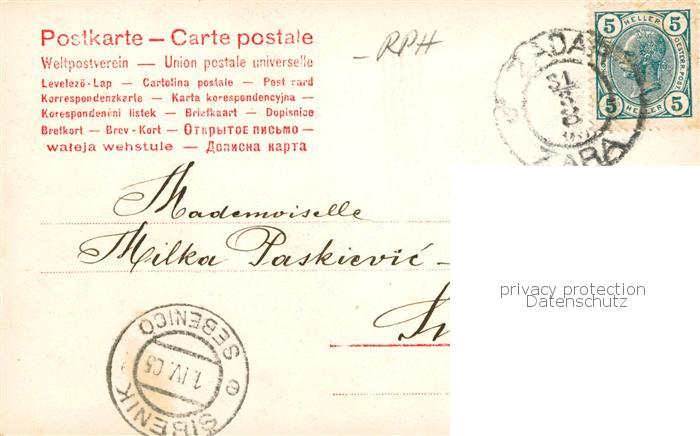 Postkarte – Carte postale
Weltpostverein — Union postale universelle
Levelező-Lap — Cartolina postale — Post card
Korrespondenzkarte — Karta korespondencyjna —
Korespondenční listek — Briefkaart — Dopisnice
Brefkort — Brev-Kort — Открытое письмо —
wateja wehstule — Дописна карта
RPH
ZADAR
ZARA
5 HELLER 5
5 HELLER 5
Mademoiselle
Milka Paskiević
privacy protection
Datenschutz
SEBENICO
1. IV. 03
ŠIBENIK